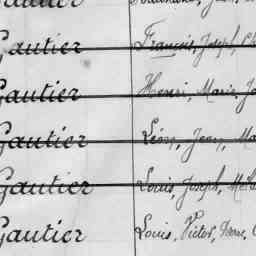 Gautier François, Joseph,
Gautier Henri, Marie, Jo
Gautier Léon, Jean, Ma
Gautier Louis, Joseph,
Gautier Louis, Victor, Pierre,